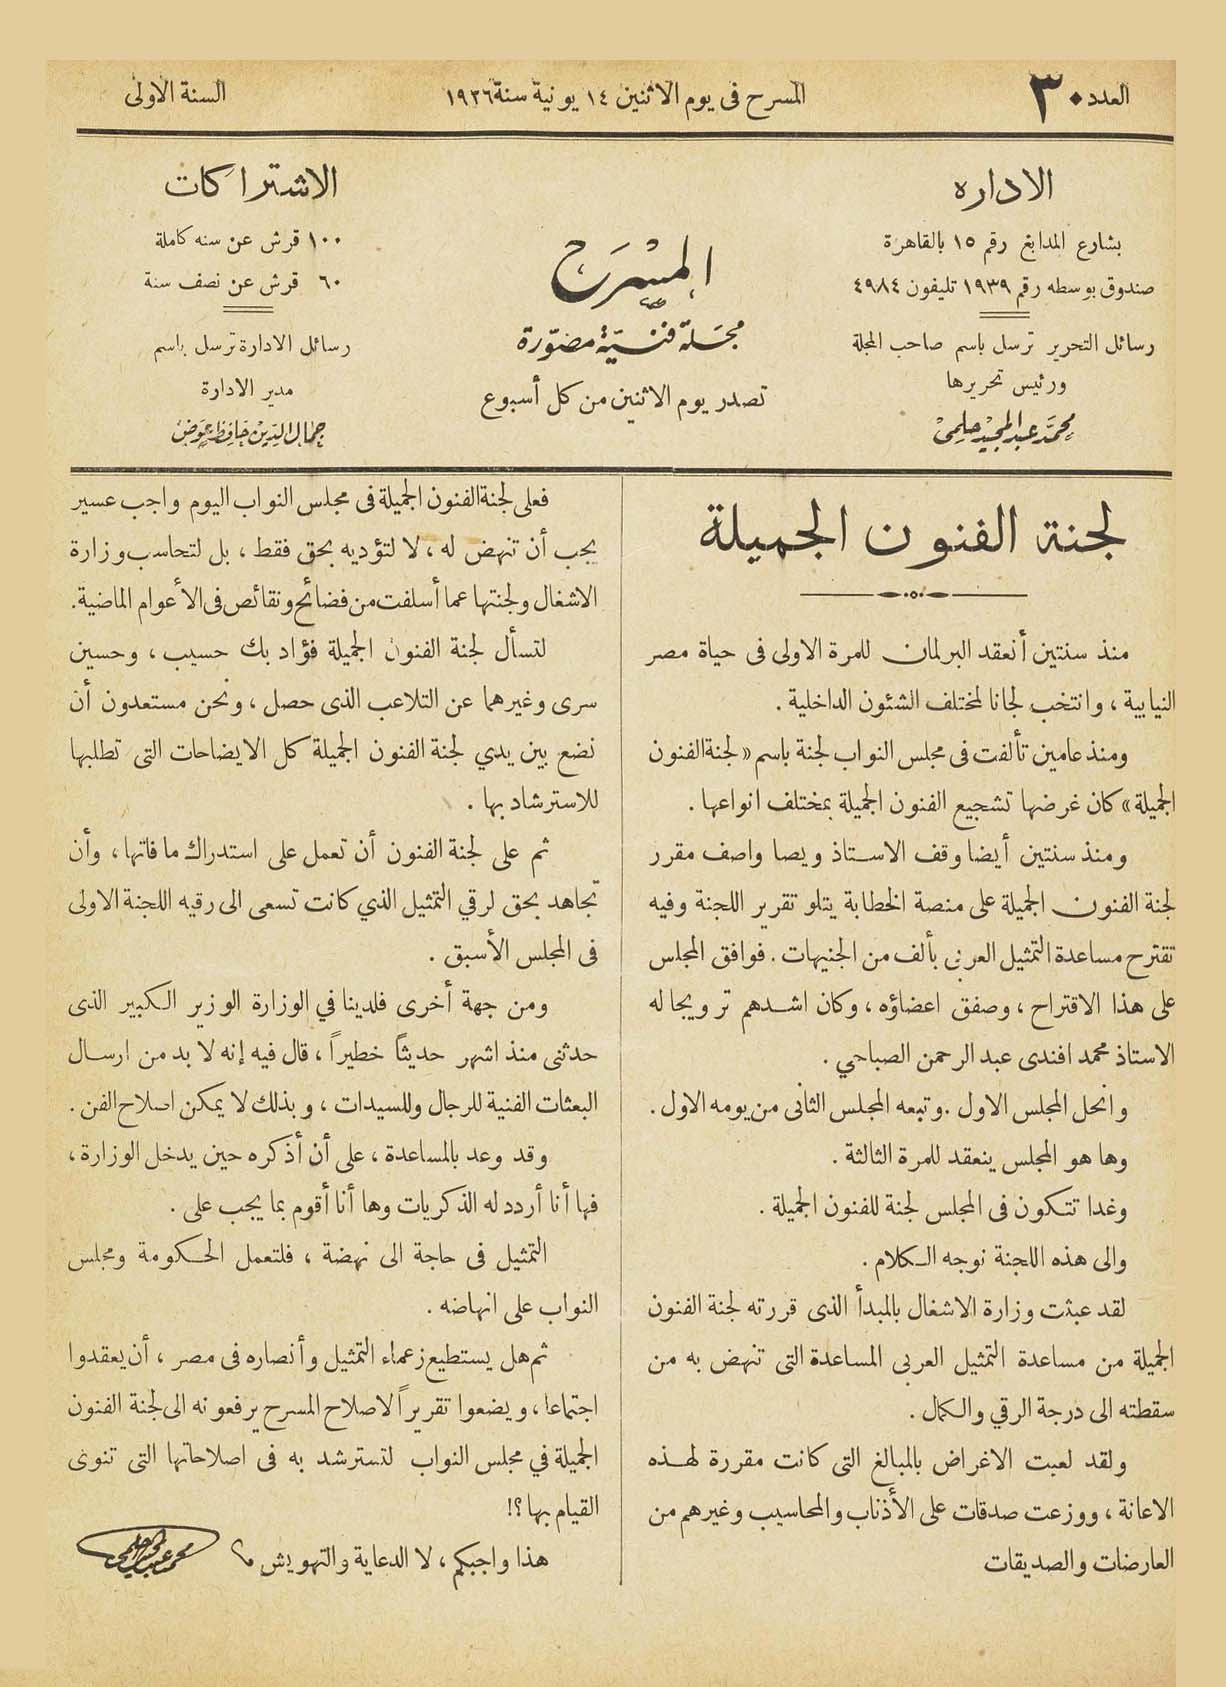 العدد ٣٠
المسرح فى يوم الاثنين ١٤ يونية سنة ١٩٢٦
السنة الاولى
الاداره
بشارع المدابغ رقم ١٥ بالقاهرة
صندوق بوسطه رقم ١٩٣٩ تليفون ٤٩٨٤
رسائل التحرير ترسل باسم صاحب المجلة
ورئيس تحريرها
محمد عبد المجيد حلمى
المسرح
مجلة فنية مصورة
تصدر يوم الاثنين من كل أسبوع
الاشتراكات
١٠٠ قرش عن سنه كاملة
٦٠ قرش عن نصف سنة
رسائل الادارة ترسل باسم
مدير الادارة
جمال الدين حافظ عوض
لجنة الفنون الجميلة
منذ سنتين أنعقد البرلمان للمرة الاولى فى حياة مصر
النيابية ، وانتخب لجانا لمختلف الشئون الداخلية .
ومنذ عامين تألفت فى مجلس النواب لجنة باسم « لجنة الفنون
الجميلة » كان غرضها تشجيع الفنون الجميلة بمختلف انواعها .
ومنذ سنتين أيضا وقف الاستاذ ويصا واصف مقرر
لجنة الفنون الجميلة على منصة الخطابة يتلو تقرير اللجنة وفيه
تقترح مساعدة التمثيل العربى بألف من الجنيهات . فوافق المجلس
على هذا الاقتراح ، وصفق اعضاؤه ، وكان اشدهم ترويجا له
الاستاذ محمد افندى عبد الرحمن الصباحي .
وانحل المجلس الاول . وتبعه المجلس الثانى من يومه الاول .
وها هو المجلس ينعقد للمرة الثالثة .
وغدا تتكون فى المجلس لجنة للفنون الجميلة .
والى هذه اللجنة نوجه الكلام .
لقد عبثت وزارة الاشغال بالمبدأ الذى قررته لجنة الفنون
الجميلة من مساعدة التمثيل العربى المساعدة التى تنهض به من
سقطته الى درجة الرقي والكمال .
ولقد لعبت الاغراض بالمبالغ التى كانت مقررة لهذه
الاعانة ، ووزعت صدقات على الأذناب والمحاسيب وغيرهم من
العارضات والصديقات
فعلى لجنة الفنون الجميلة فى مجلس النواب اليوم واجب عسير
يجب أن تنهض له ، لا لتؤديه بحق فقط ، بل لتحاسب وزارة
الاشغال ولجنتها عما أسلفت من فضائح ونقائص فى الأعوام الماضية .
لتسأل لجنة الفنون الجميلة فؤاد بك حسيب ، وحسين
سرى وغيرهما عن التلاعب الذى حصل ، ونحن مستعدون أن
نضع بين يدي لجنة الفنون الجميلة كل الايضاحات التى تطلبها
للاسترشاد بها .
ثم على لجنة الفنون أن تعمل على استدراك ما فاتها ، وأن
تجاهد بحق لرقي التمثيل الذي كانت تسعى الى رقيه اللجنة الاولى
فى المجلس الأسبق .
ومن جهة أخرى فلدينا في الوزارة الوزير الكبير الذى
حدثنى منذ اشهر حديثاً خطيراً ، قال فيه إنه لا بد من ارسال
البعثات الفنية للرجال وللسيدات ، وبذلك لا يمكن اصلاح الفن .
وقد وعد بالمساعدة ، على أن أذكره حين يدخل الوزارة ،
فها أنا أردد له الذكريات وها أنا أقوم بما يجب على .
التمثيل فى حاجة الى نهضة ، فلتعمل الحكومة ومجلس
النواب على انهاضه .
ثم هل يستطيع زعماء التمثيل وأنصاره فى مصر ، أن يعقدوا
اجتماعا ، ويضعوا تقريراً لاصلاح المسرح يرفعونه الى لجنة الفنون
الجميلة في مجلس النواب لتسترشد به فى اصلاحاتها التى تنوى
القيام بها ؟!
هذا واجبكم ، لا الدعاية والتهويش
محمد عبد المجيد حلمى